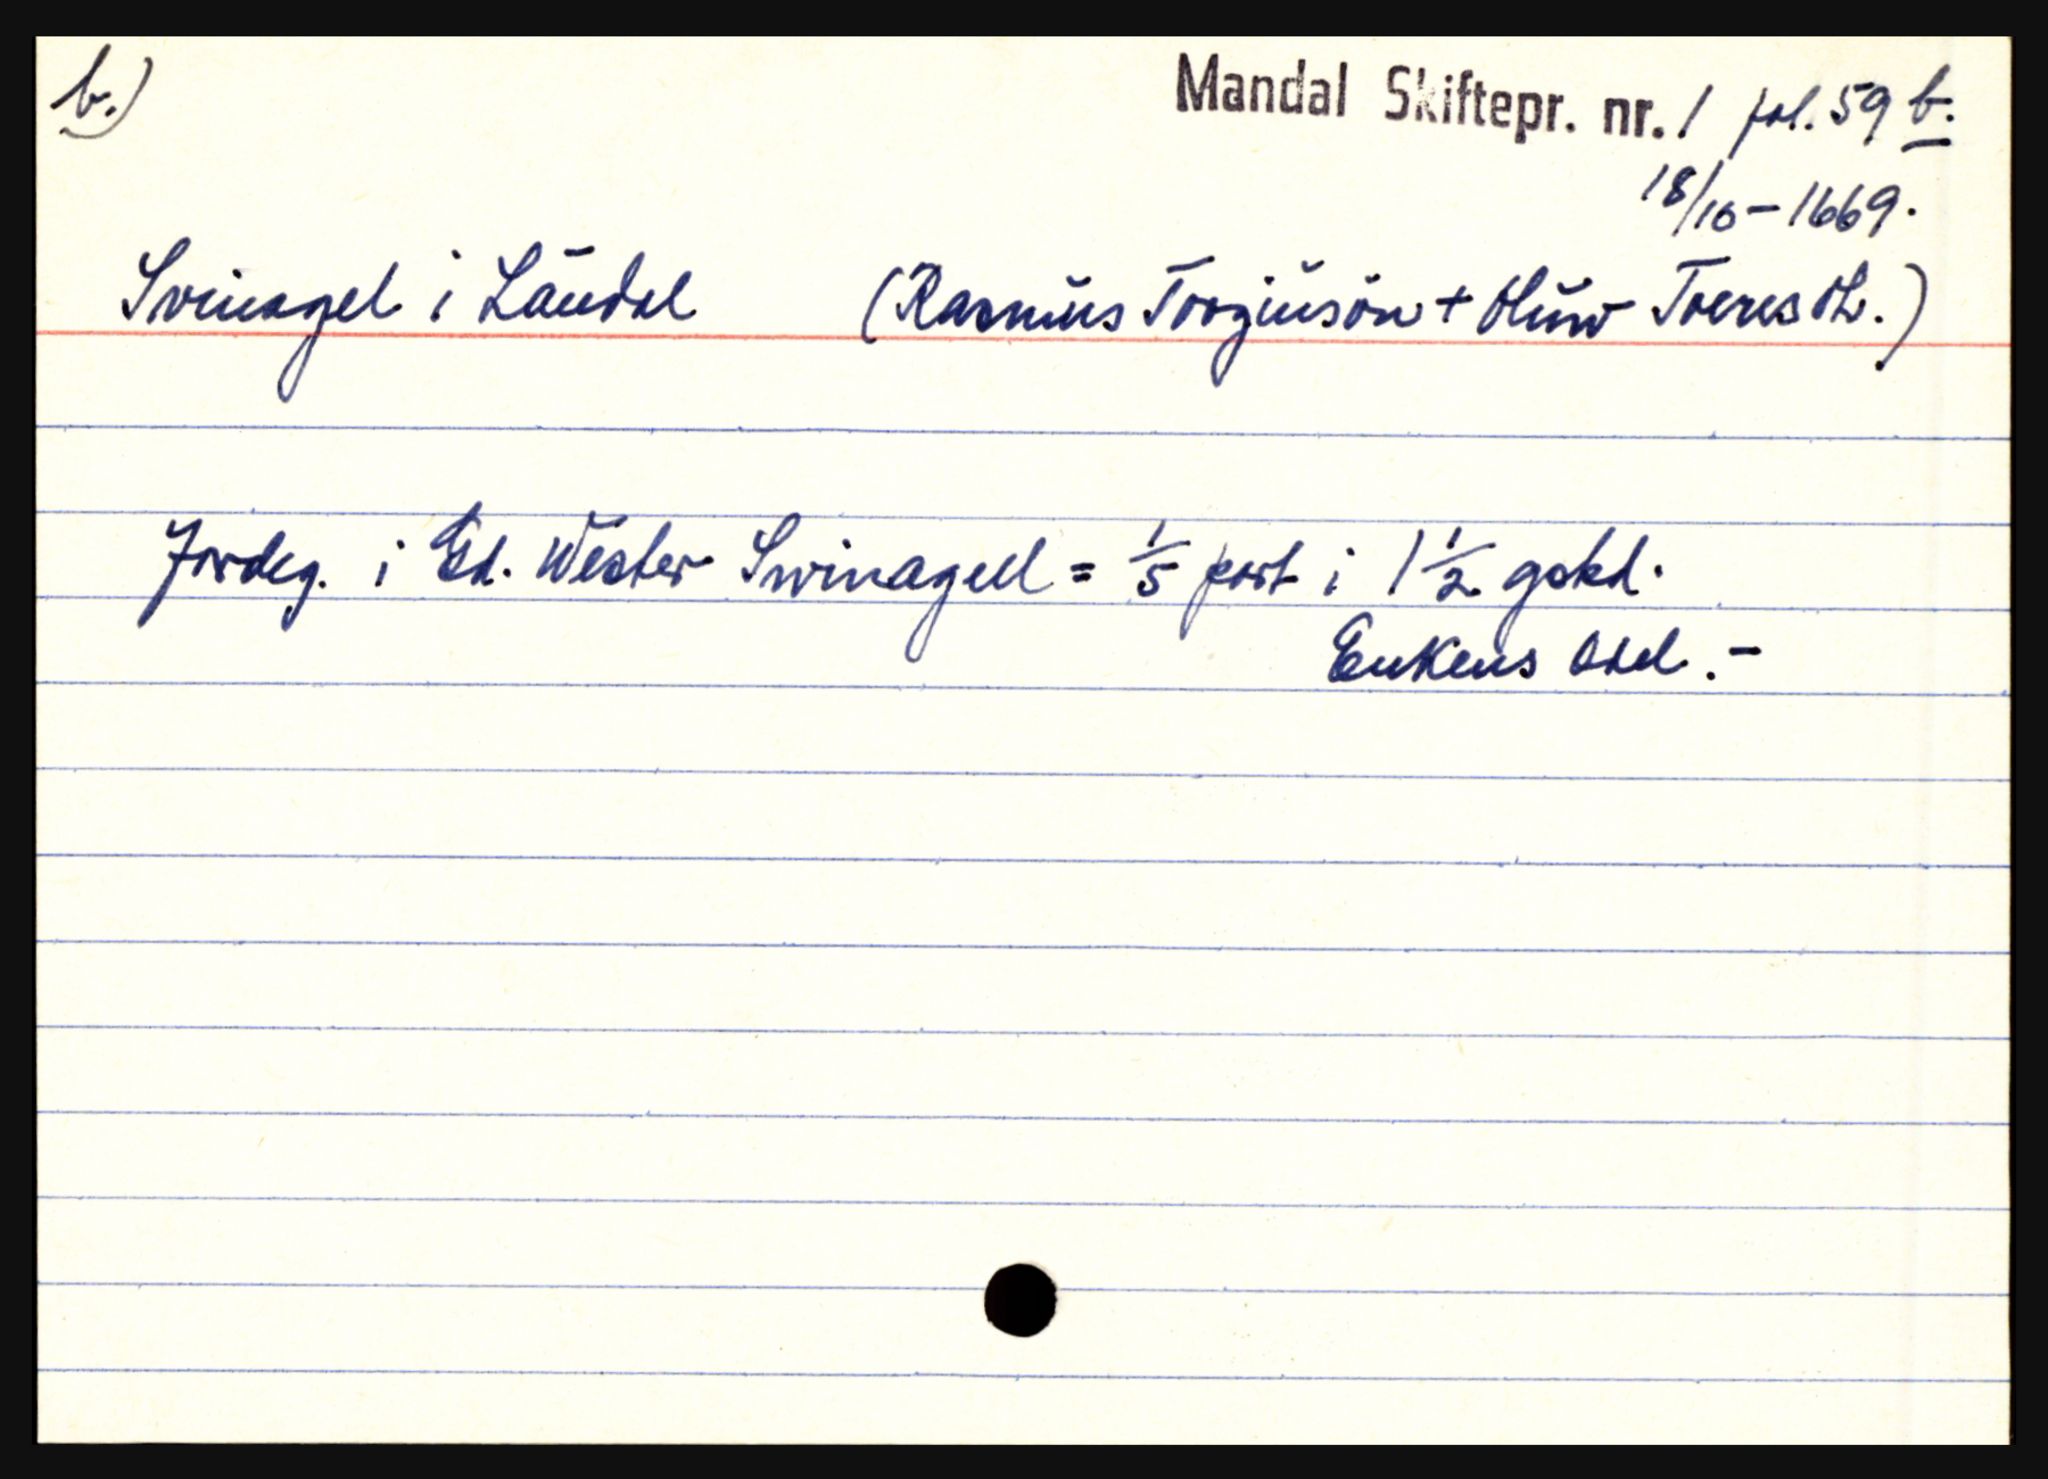 b.)
Mandal Skiftepr. nr. 1 fol. 59 b.
18/10 - 1669.
Svinagel i Laudal (Rasmus Torgiusön + Tores dtr.)
Jordeg. i Gd. Wester Svinagell = 1/5 part i 1 1/2 gskd.
Enkens Odel. -